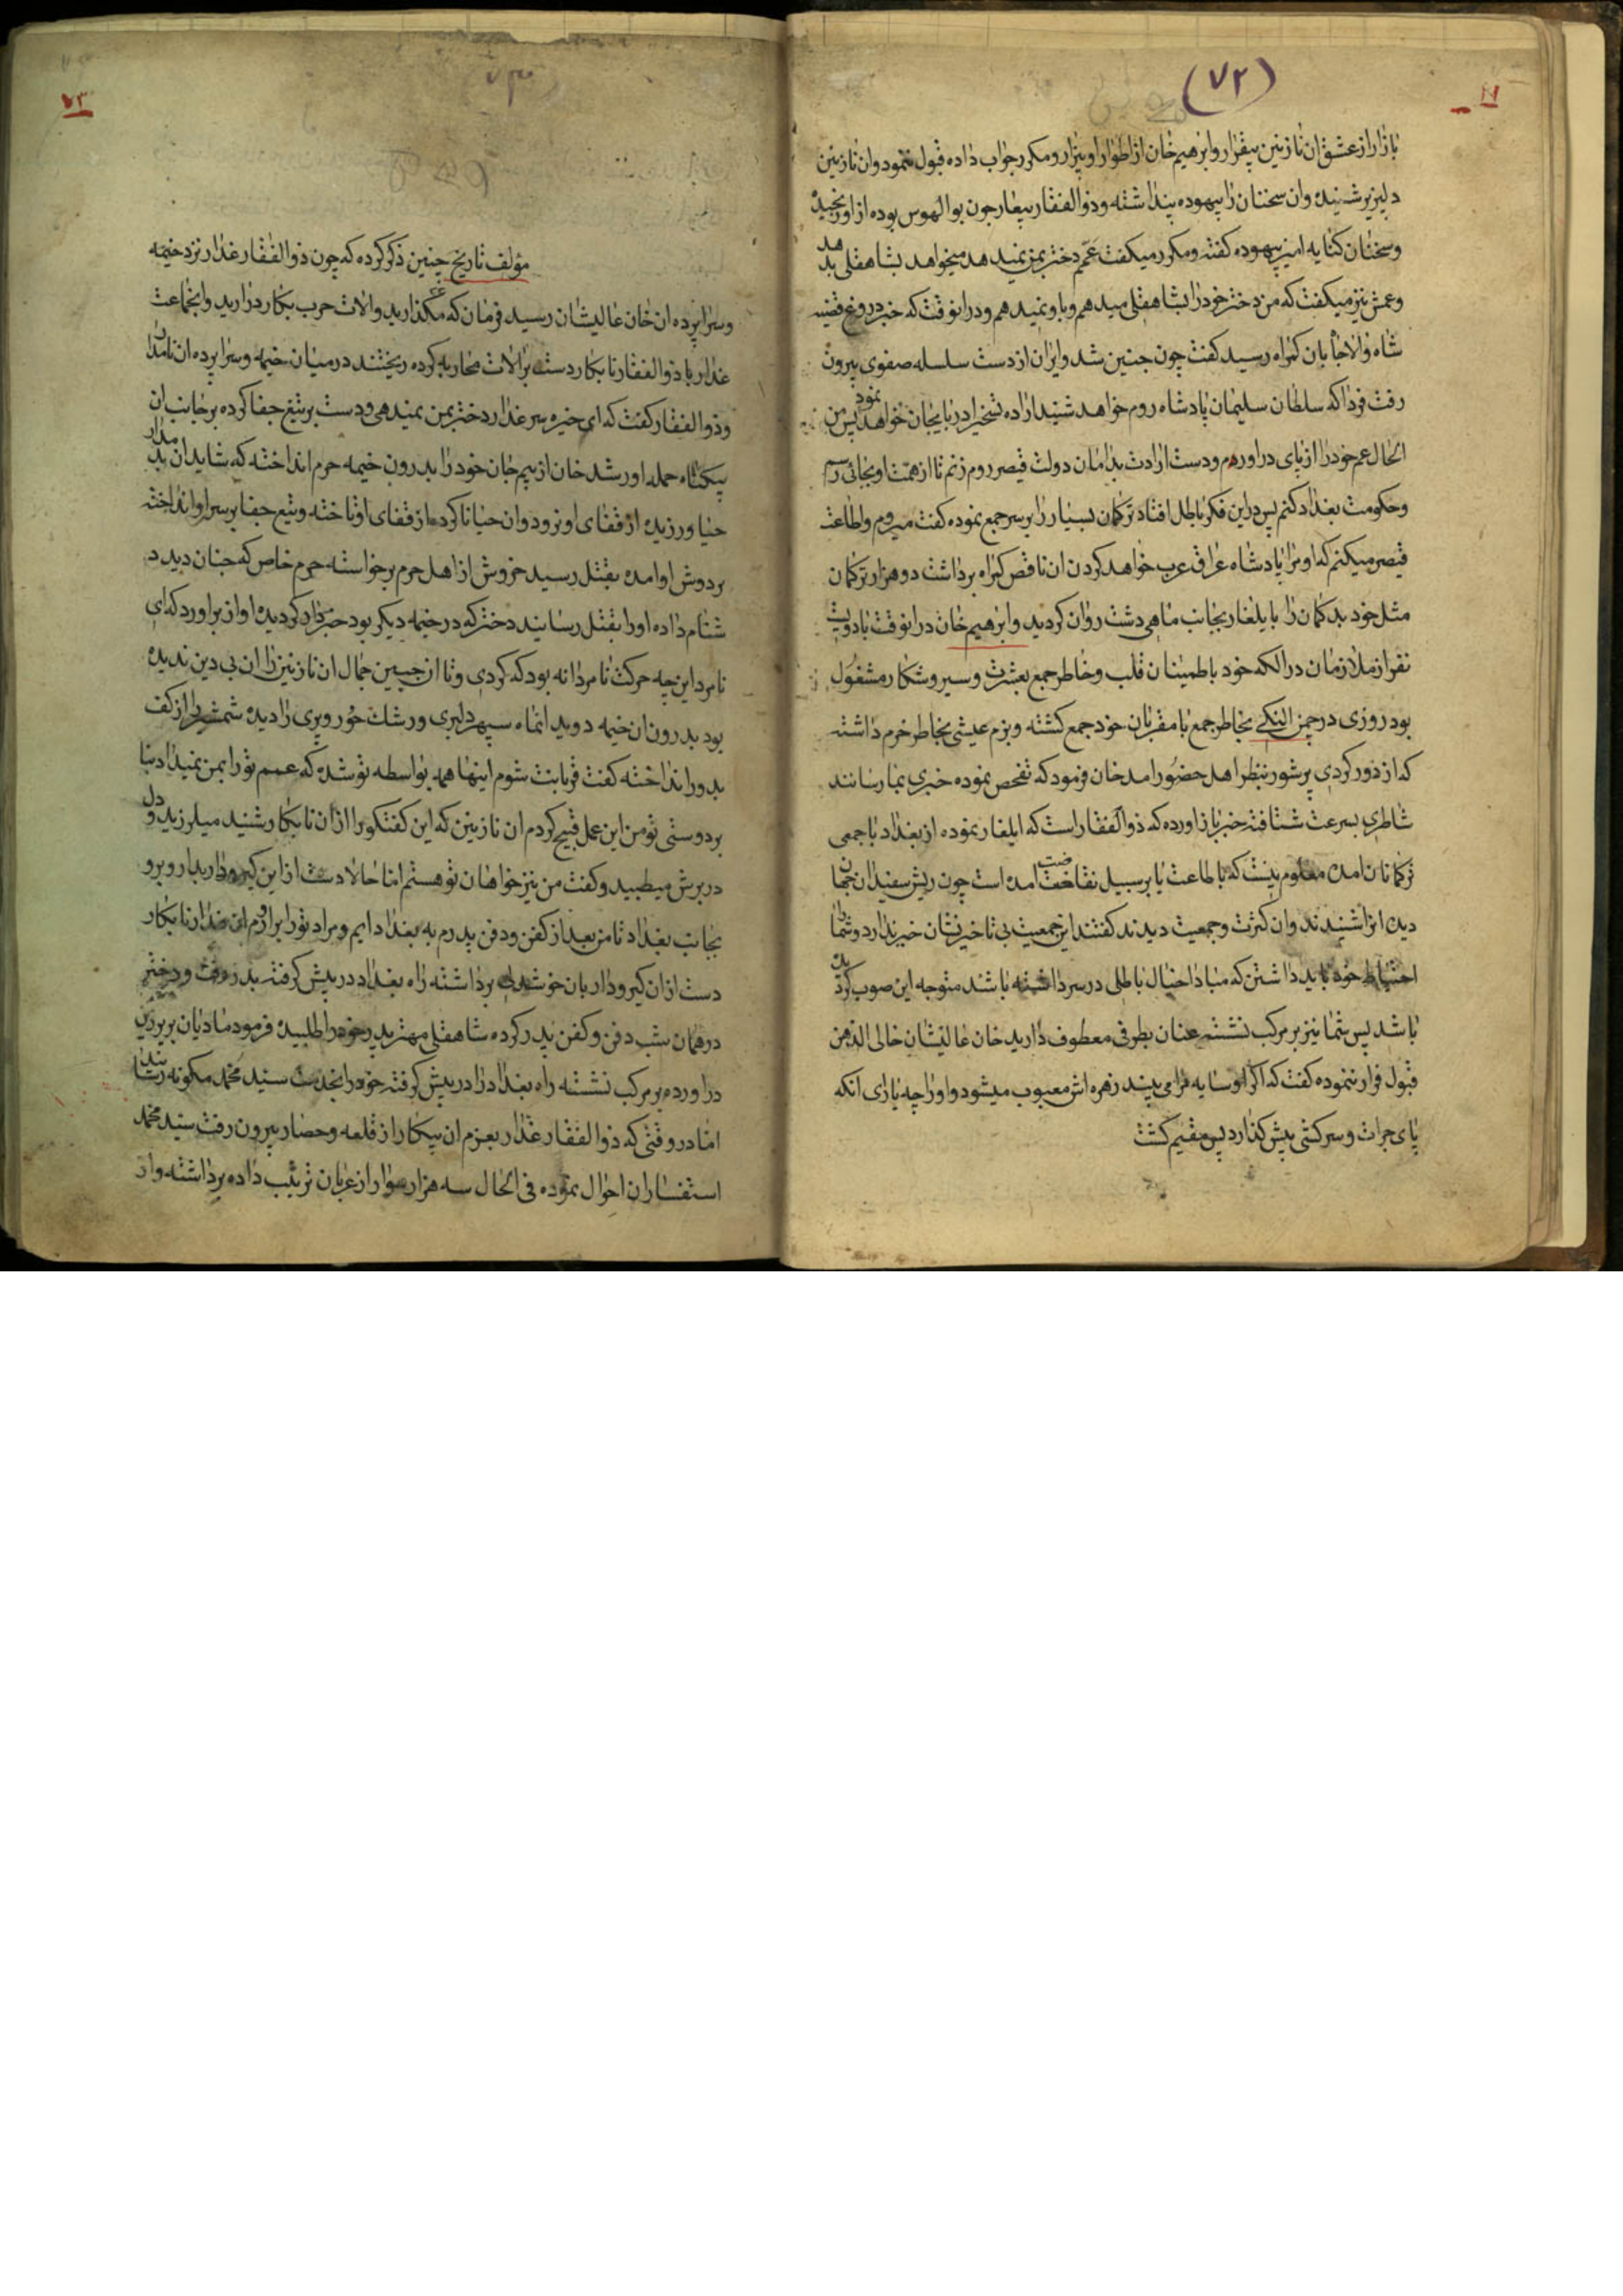 (۷۲)
بازار از عشق ان نازنین بیقرار و ابرهیم خان از اطوار او بیزار و مکرر جواب داده قبول ننمود و ان نازنین
دلپزیر شنیده وان سخنان را بیهوده پنداشته و ذوالفقار بیعار چون بوالهوس بوده از او رنجیده
و سخنان کنایه امیز بیهوده کفته و مکرر میکفت عمم دختر بمن نمیدهد میخواهد بشاهقلی بدهد
و عمش نیز میکفت که من دختر خود را بشاهقلی میدهم و باو نمیدهم و درانوقت که خبر دروغ قضیه
شاه والاجاه بان کمراه رسید کفت چون چنین شد و ایران از دست سلسله صفوی بیرون
رفت فردا که سلطان سلیمان پادشاه روم خواهد شنید اراده تسخیر ادربایجان خواهد نمود پس من
الحال عم خود را از پای دراورم و دست ارادت بدامان دولت قیصر روم زنم تا از همت او بجائی رسم
و حکومت بغداد کنم پس دراین فکر باطل افتاد ترکمان بسیار را بر سر جمع نموده کفت میروم و اطاعت
قیصر میکنم که او مرا پادشاه عراق عرب خواهد کردن ان ناقص کمراه برداشت دو هزار ترکمان
مثل خود بدکمان را بایلغار بجانب ماهی دشت روان کردید و ابرهیم خان درانوقت با دویست
نفر از ملازمان در الکه خود باطمینان قلب و خاطر جمع بعشرت و سیر و شکار مشغول
بود روزی در چمن النکی بخاطر جمع با مقربان خود جمع کشته و بزم عیشی بخاطر خرم داشته
که از دور کردی پر شور بنظر اهل حضور امد خان فرمود که تفحص نموده خبری بما رسانند
شاطری بسرعت شتافته خبر باز اورده که ذوالفقار است که ایلغار نموده از بغداد با جمعی
ترکمانان امده معلوم نیست که باطاعت یا بر سبیل نقاضت امده است چون ریش سفیدان جهان
دیده انرا شنیدند وان کثرت و جمعیت دیدند کفتند این جمعیت بی تاخیر نشان خبر ندارد و شما را
احتیاط خود باید داشتن که مبادا خیال باطلی در سر داشته باشد متوجه این صوب کردیده
باشد پس شما نیز بر مرکب نشسته عنان بطرفی معطوف دارید خان عالیشان خالی الذهن
قبول فرار ننموده کفت که اکر او سایه مرا می بیند زهره اش معیوب میشود و او را چه یارای انکه
پای جرات و سرکشی پیش کذارد پس مقیم کشت
۷۳
مؤلف تاریخ چنین ذکر کرده که چون ذوالفقار غدار نزد خیمه
و سراپرده ان خان عالیشان رسید فرمان که مکذارید والات حرب بکار درارید و انجماعت
غدار با ذوالفقار نابکار دست برالات محاربه کرده ریختند در میان خیمه و سراپرده ان نامدار
و ذوالفقار کفت که ای خیره سر غدار دختر بمن نمیدهی و دست بر تیغ جفا کرده بر جانب ان
بیکناه حمله اور شد خان از بیم جان خود را بدرون خیمه حرم انداخته که شاید ان بدمدار
حیا ورزیده از قفای او نرود وان حیا ناکرده از قفای او تاخته و تیغ جفا بر سر او انداخته
بردوش او امده بقتل رسید خروش از اهل حرم برخواسته حرم خاص که چنان دید د
شنام داده او را بقتل رسانید دختر که در خیمه دیکر بود خبردار کردیده اواز براورد که ای
نامرد این چه حرکت نامردانه بود که کردی و تا ان حبین جمال ان نازنین را ان بی دین ندیده
بود بدرون ان خیمه دوید انماه سپهر دلبری و رشک حور و پری را دیده شمشیر را از کف
بدور انداخته کفت قربانت شوم اینها همه بواسطه تو شده که عمم تو را بمن نمیداد بنا
بر دوستی تو من این عمل قبیح کردم ان نازنین که این کفتکو را از ان نابکار شنید میلرزید و دل
در برش میطپید و کفت من نیز خواهان تو هستم اما حالا دست از این کیر و دار بدار و برو
بجانب بغداد تا من بعد از کفن و دفن پدرم به بغداد ایم و مراد تو را براورم این غدار نابکار
دست ازان کیر و دار بان خوشدلی برداشته راه بغداد در پیش کرفته بدر رفت و دختر
در همان شب دفن و کفن پدر کرده شاهقلی مهتر پدر خود را طلبیده فرمود مادیان بر بزین
دراورده بر مرکب نشسته راه بغداد را در پیش کرفته خود را بخدمت سید محمد مکونه رسانید
اما در وقتی که ذوالفقار غدار بعزم ان پیکار از قلعه و حصار بیرون رفت سید محمد
استفسار ان احوال نموده فی الحال سه هزار سوار از عربان ترتیب داده برداشته و از